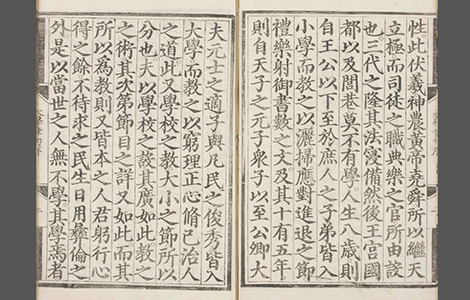 性此伏羲神農黃帝堯舜所以繼天
立極而司徒之職典樂之官所由設
也三代之隆其法寖備然後王宮國
都以及閭巷莫不有學人生八歲則
自王公以下至於庶人之子弟皆入
小學而教之以灑掃應對進退之節
禮樂射御書數之文及其十有五年
則自天子之元子衆子以至公卿大
夫元士之適子與凡民之俊秀皆入
大學而教之以窮理正心脩己治人
之道此又學校之教大小之節所以
分也夫以學校之設其廣如此教之
之術其次第節目之詳又如此而其
所以為教則又皆本之人君躬行心
得之餘不待求之民生日用彝倫之
外是以當世之人無不學其學焉者